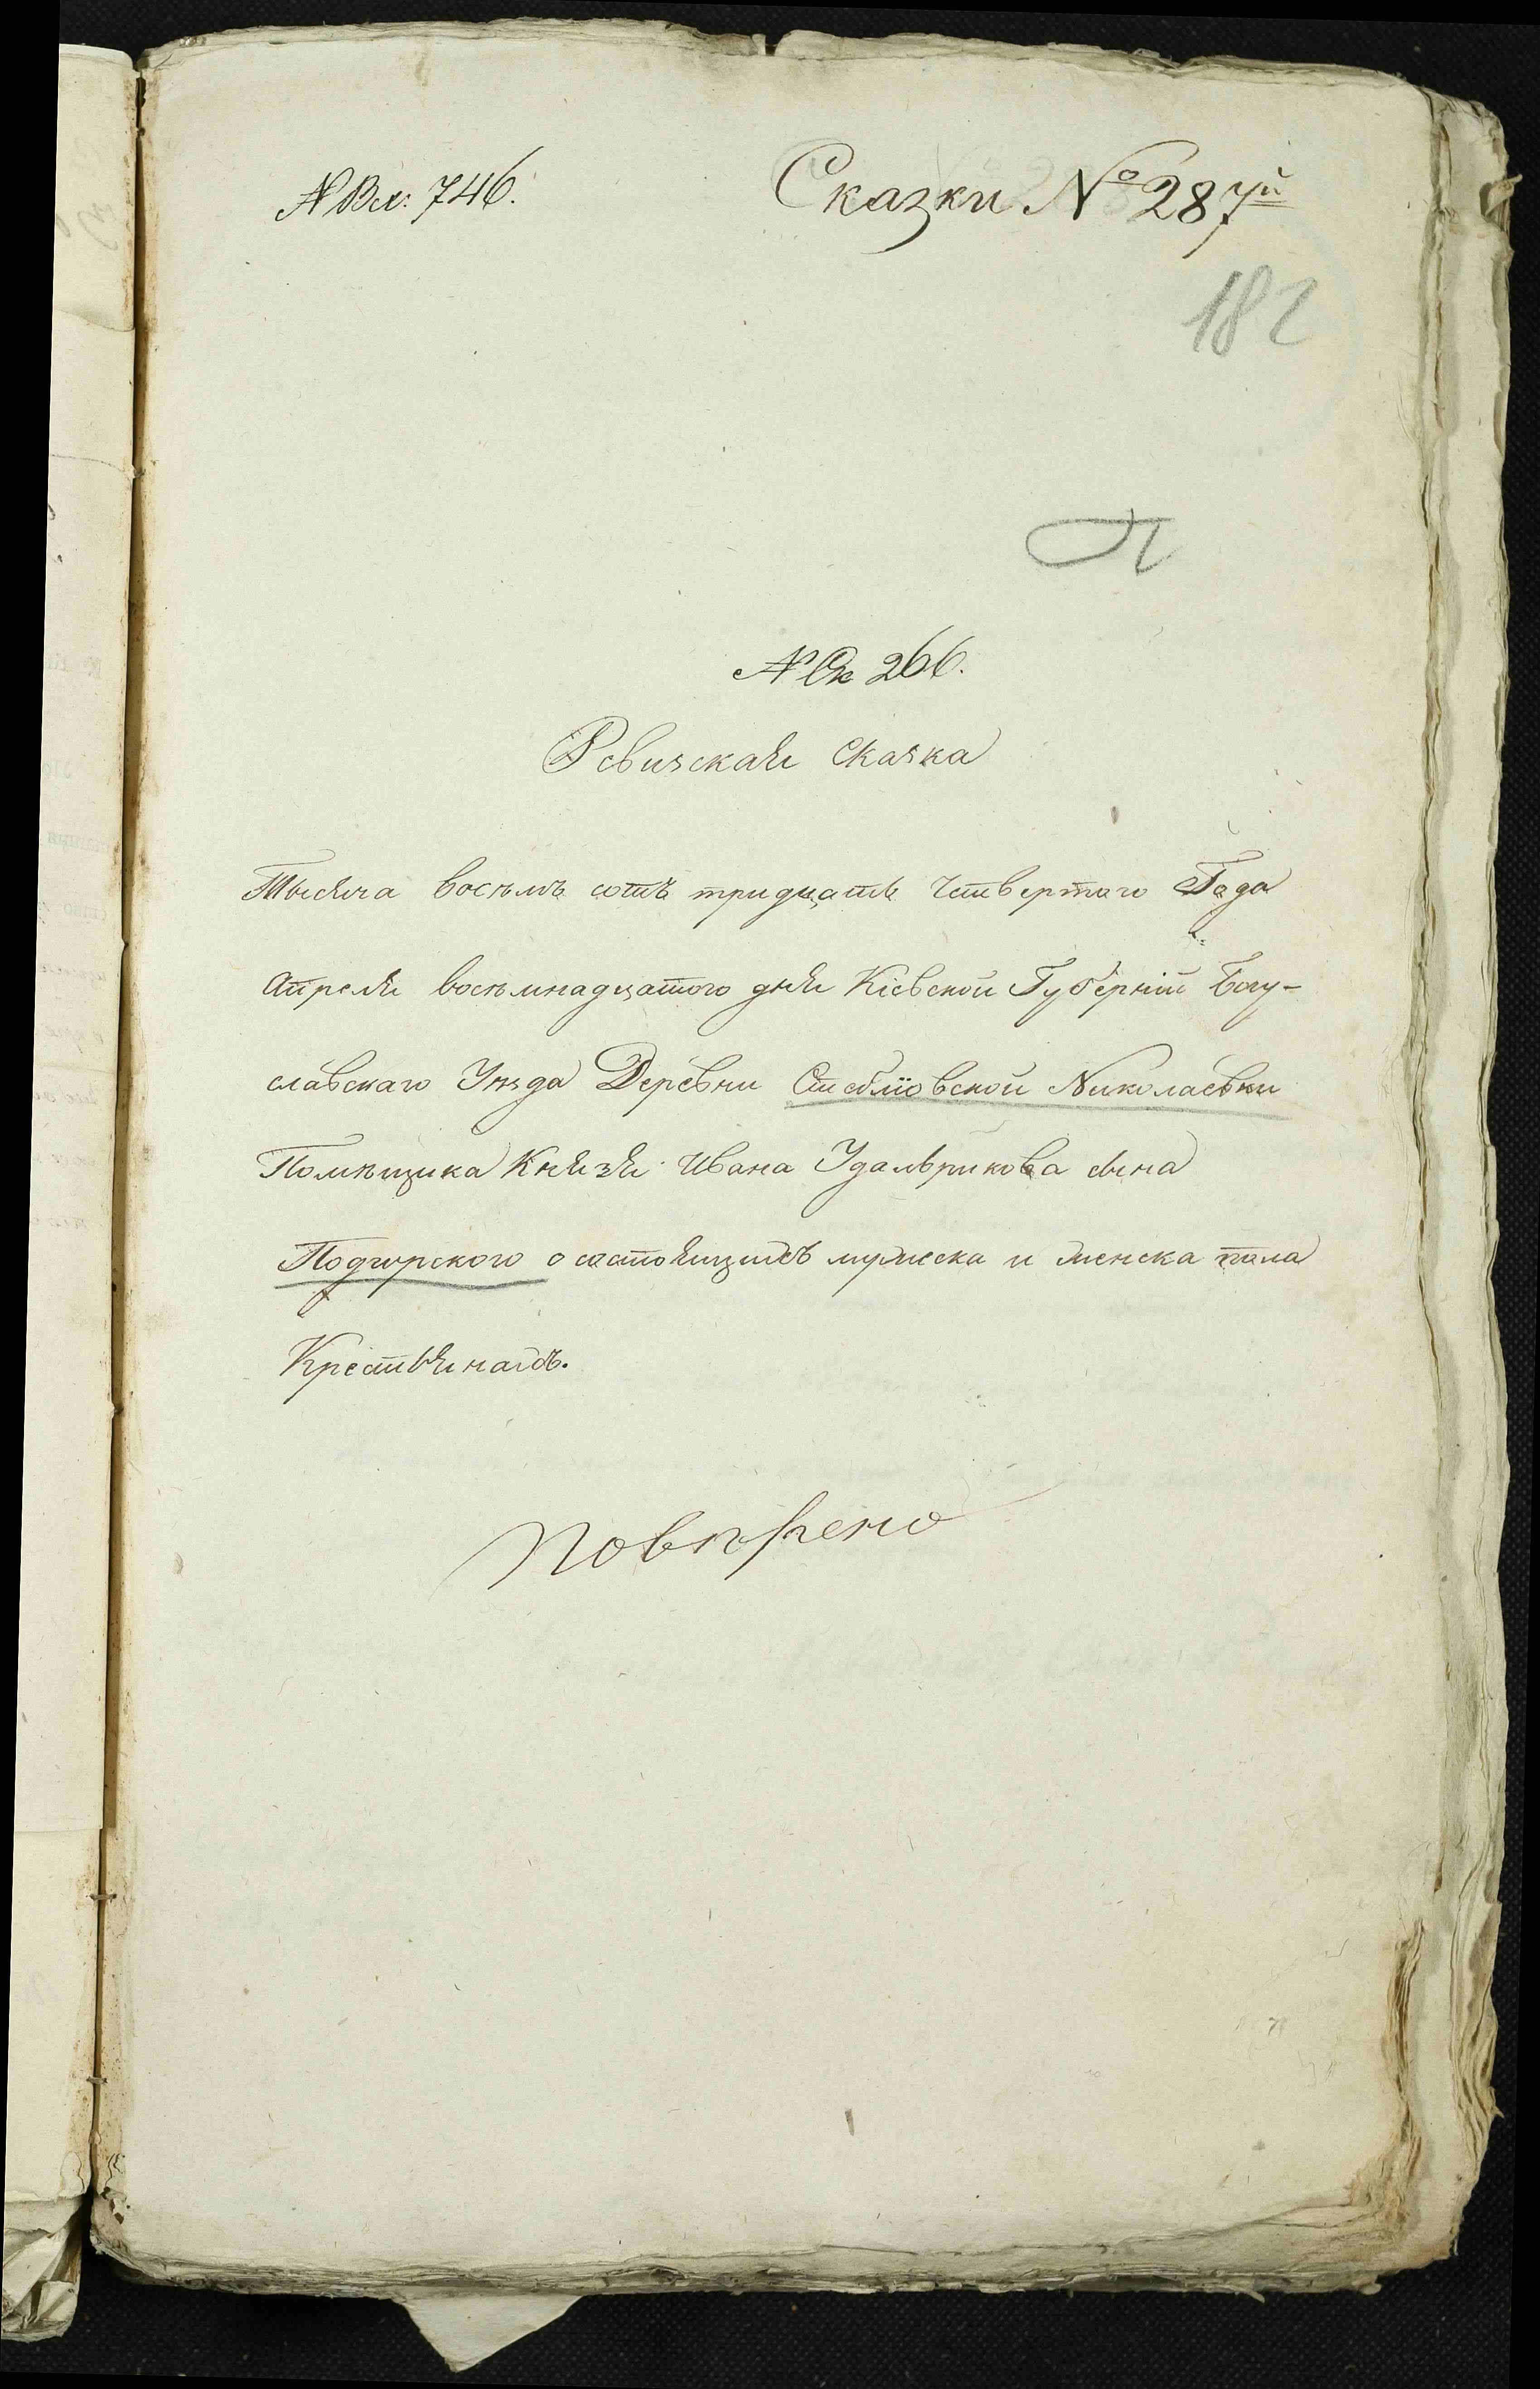 № Вл: 746.
Сказки № 287й
182
№ Ск 266.
Ревизская Сказка
Тысяча восѣмъ сотъ тридцать Четвертаго Года
Апреля восѣмнадцатого дня Кіевской Губерніи Богу-
славскаго Уѣзда Деревни Стеблiовской Николаевки
Помѣщика Князя Ивана Удальрикова сына
Подгурского о состоящихъ мужеска и женска пола
Крестьянахъ.
Повѣрено